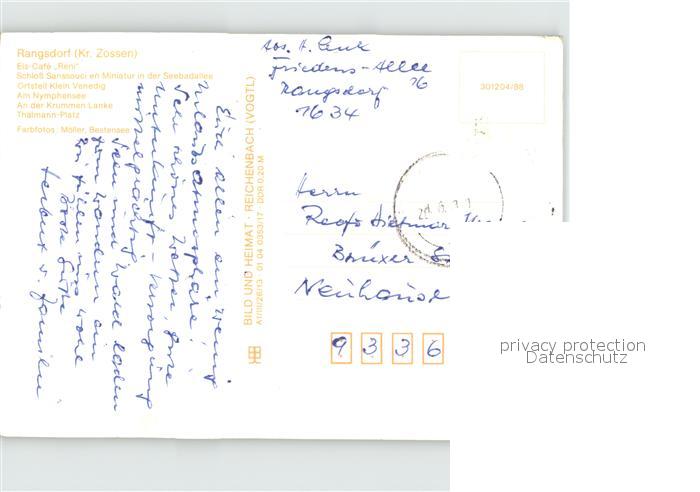 Rangsdorf (Kr. Zossen)
Eis-Café „Reni"
Schloß Sanssouci en Miniatur in der Seebadallee
Ortsteil Klein Venedig
Am Nymphensee
An der Krummen Lanke
Thälmann-Platz
Farbfotos: Möller, Bestensee
BILD UND HEIMAT · REICHENBACH (VOGTL)
A1/III/26/13 01 04 0353/17 DDR 0,20 M
301204/88
Abs. H.
Friedens-Allee
Rangsdorf
1634
Euch allen ein wenig
Urlaubsatmosphäre!
Sehr schönes Wetter, gute
Unterkunft - Versorgung
See und Wald laden
zum Wandern ein
Wir fühlen uns wohl
Herbert u. Familie
Herrn
Dietmar
Brüxer
Neuhause
9336
privacy protection
Datenschutz